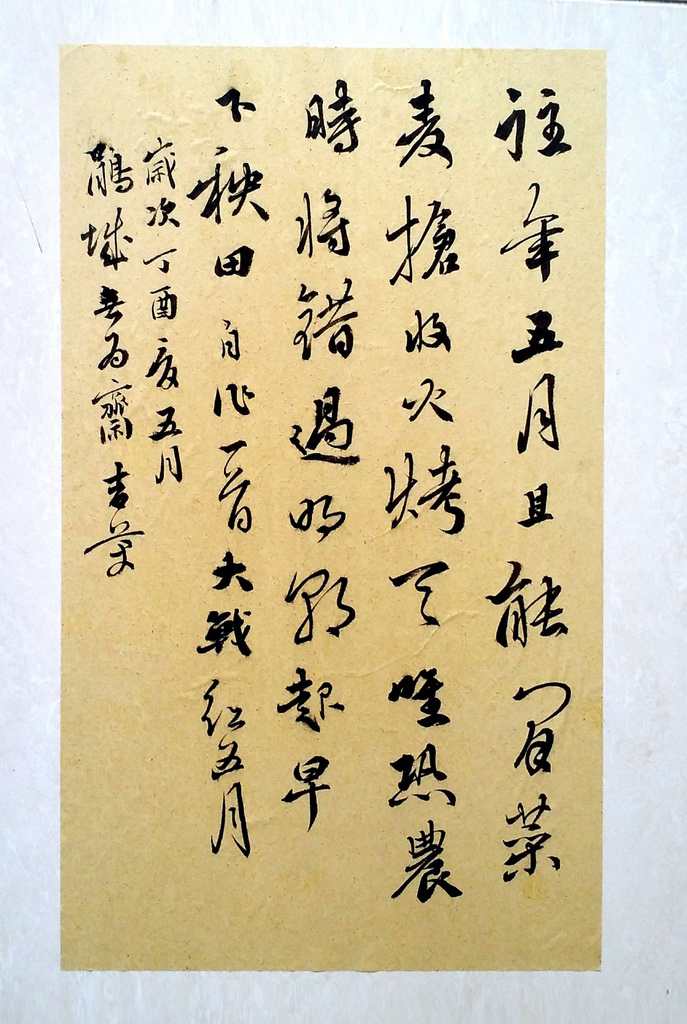 往年五月且能閒菜
麦搶收火烤天唯恐農
時将錯過明朝起早
下秧田自作一首大戰红五月
歲次丁酉夏五月
鵑城無为齋吉